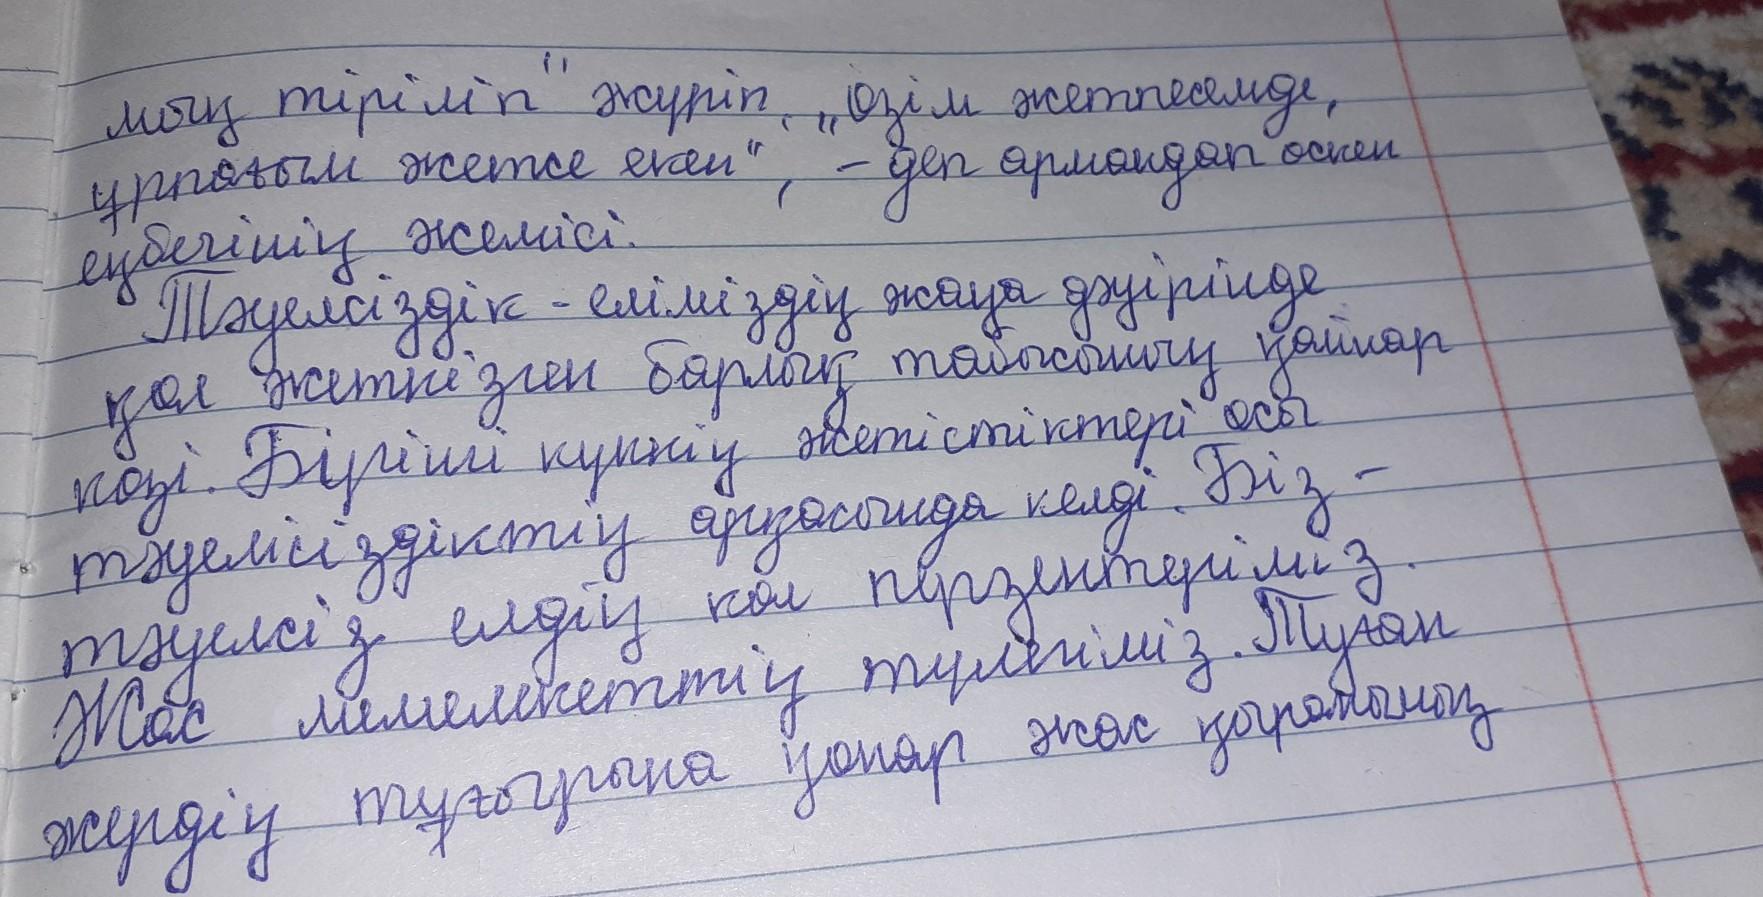 мың тіріліп" жүріп, „Өзім жетпесемде,
ұрпағым жетсе екен", - деп армандап өскен
еңбегінің жемісі.
Тәуелсіздік - еліміздің жаңа дәуірінде
қол жеткізген барлық табысының қайнар
көзі. Бірінші күннің жетістіктері осы
тәуелсіздіктің арқасында келді. Біз -
тәуелсіз елдің кол перзентеріміз.
Жас мемлекеттің түлегіміз. Туған
жердің тұғырына қонар жас қыранының